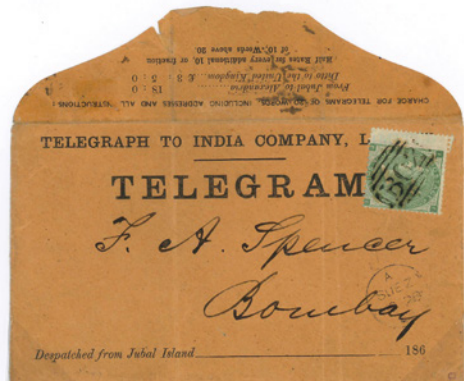 CHARGE FOR TELEGRAMS OF 20 WORDS, INCLUDING ADDRESSES AND ALL INSTRUCTIONS:
From Jubal to Alexandria 18 : 0
Ditto to the United Kingdom. £3 : 5 : 0
Half Rates for every additional 10, or fraction
of 10, Words above 20.
TELEGRAPH TO INDIA COMPANY, L
TELEGRAM
F. A. Spencer
Bombay
A
SUEZ
Despatched from Jubal Island 186